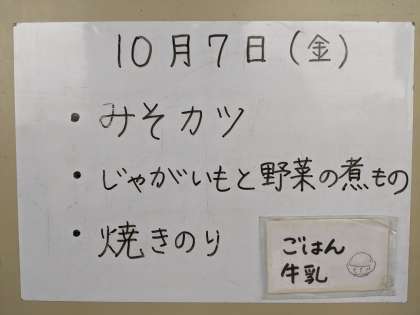 10月7日(金)
・みそカツ
・じゃがいもと野菜の煮もの
・焼きのり
ごはん
牛乳